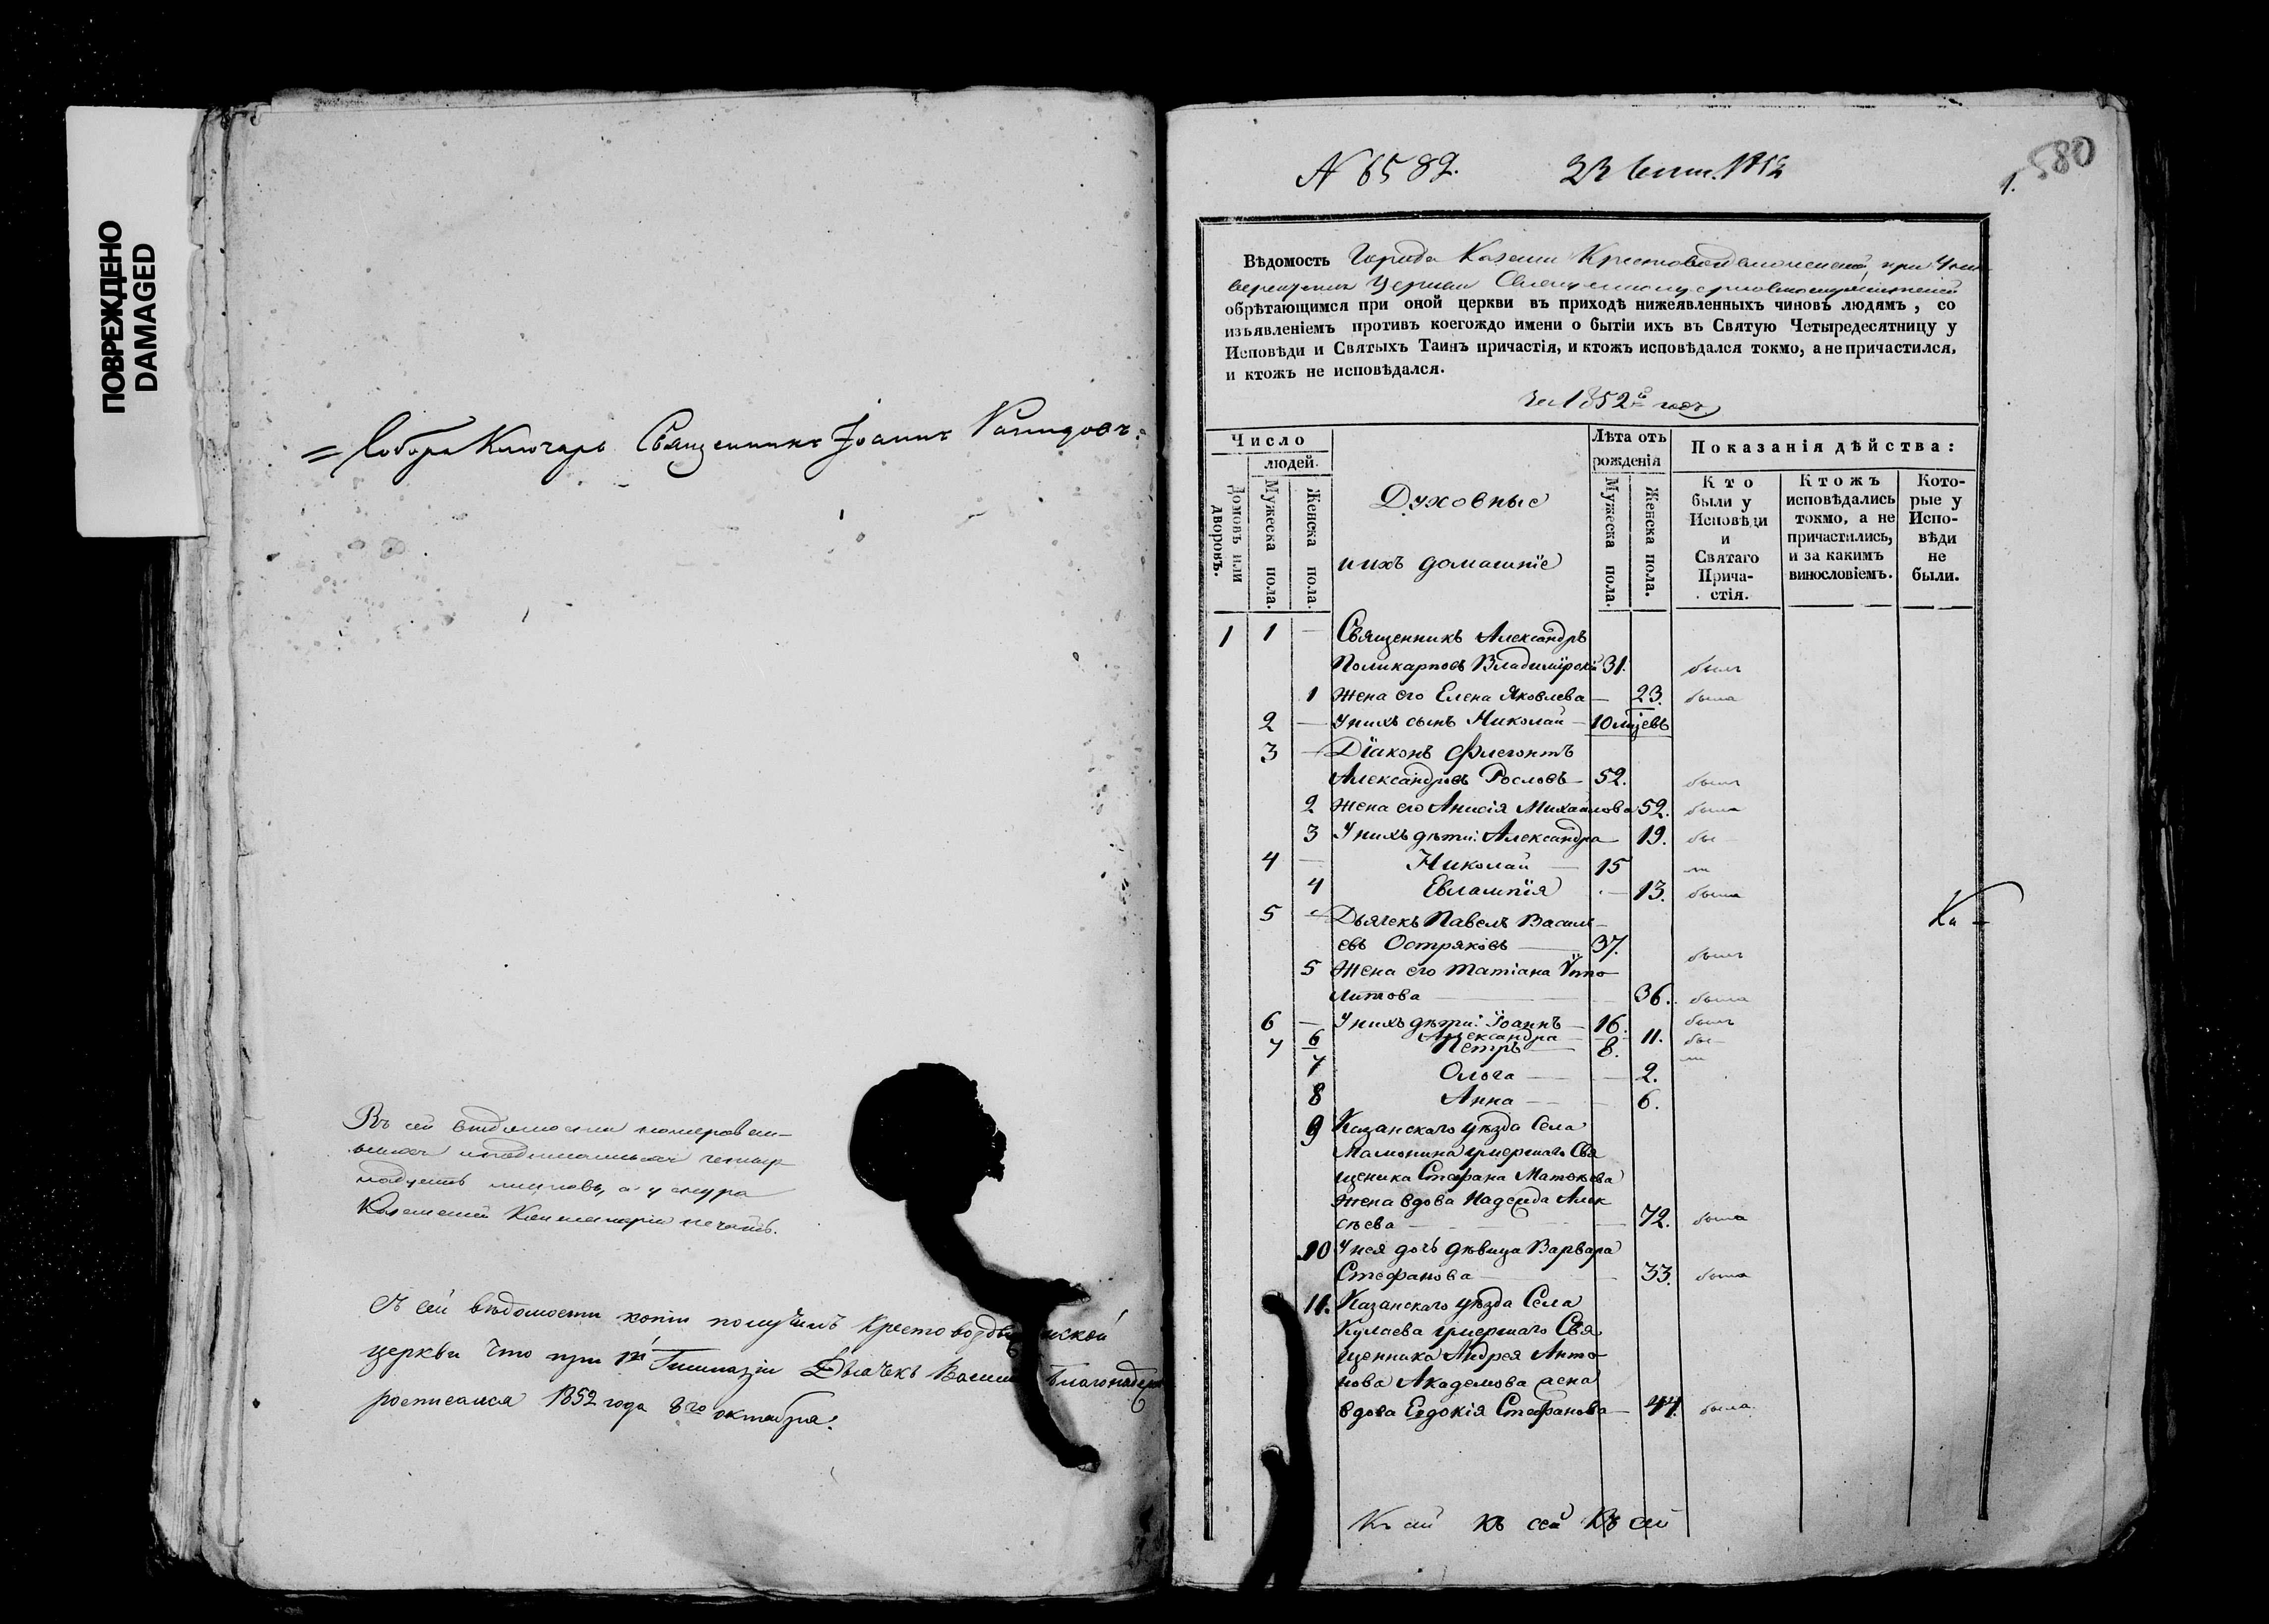 ПОВРЕЖДЕНО
DAMAGED
= Собора Ключарь Священникъ Іоаннъ
Въ сей вѣдомости номерован-
листовъ, а у снура
Казенной печать.
Съ сей вѣдомости копію получилъ Крестовоздв скои
церкви что при 1й Гимназіи Дьячекъ Васил
росписался 1852 года 8го октября.
N 6589. 23 1852
1. 580
Вѣдомость Города Казани Крестовоздвиженской, при Уни-
верситетѣ Церкви
обрѣтающимся при оной церкви въ приходѣ нижеявленныхъ чиновъ людямъ, со
изъявленіемъ противъ коегождо имени о бытіи ихъ въ Святую Четыредесятницу у
Исповѣди и Святыхъ Таинъ причастія, и ктожъ исповѣдался токмо, а не причастился,
и ктожъ не исповѣдался.
За 1852й годъ
Число
людей.
Домовъ или дворовъ.
Мужеска пола.
Женска пола.
Духовные
и ихъ домашніе
Лѣта отъ
рожденія
Мужеска пола.
Женска пола.
Показанія дѣйства:
Кто
были у
Исповѣди
и
Святаго
Прича-
стія.
Ктожъ
исповѣдались
токмо, а не
причастились,
и за какимъ
винословіемъ.
Кото-
рые у
Испо-
вѣди
не
были.
1 1 — Священникъ Александръ
Поликарповъ Владимірскій 31. былъ
1 Жена его Елена Яковлева — 23. была
2 — У нихъ сынъ Николай — 10 мцевъ
3 — Діаконъ Флегонтъ
Александровъ Рословъ — 52. былъ
2 Жена его Анисія Михаилова 52. была
3 У нихъ дѣти: Александра — 19. бы —
4 — Николай — 15 ли
4 Евлампія — 13. была
5 — Дьячекъ Павелъ Василь-
евъ Остряковъ — 37. былъ
Ка —
5 Жена его Татіана Ѵппо-
литова — 36. была
6 — У нихъ дѣти: Іоаннъ — 16. былъ
6 Александра — 11. бы —
7 Петръ — 8. ли
7 Ольга — 2.
8 Анна — 6.
9 Казанскаго уѣзда Села
Мамонина умершаго Свя
щеника Стефана Матвѣева
Жена вдова Надежда Алек
сѣева — 72. была
10 У нея дочь дѣвица Варвара
Стефанова — 33. была
11. Казанскаго уѣзда Села
Кулаева умершаго Свя
щенника Андрея Анто-
нова Академова жена
вдова Евдокія Стефанова — 44. была.
Къ сей къ сей Къ сей